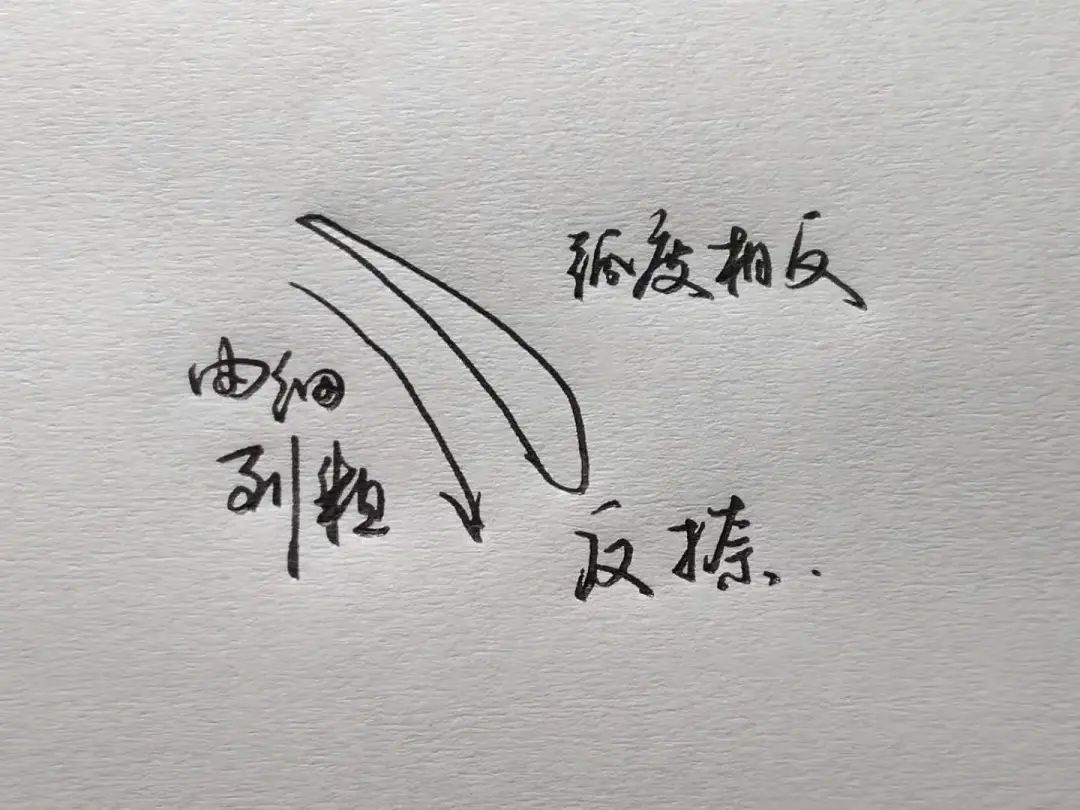 弧度相反
由细
到粗
反捺..